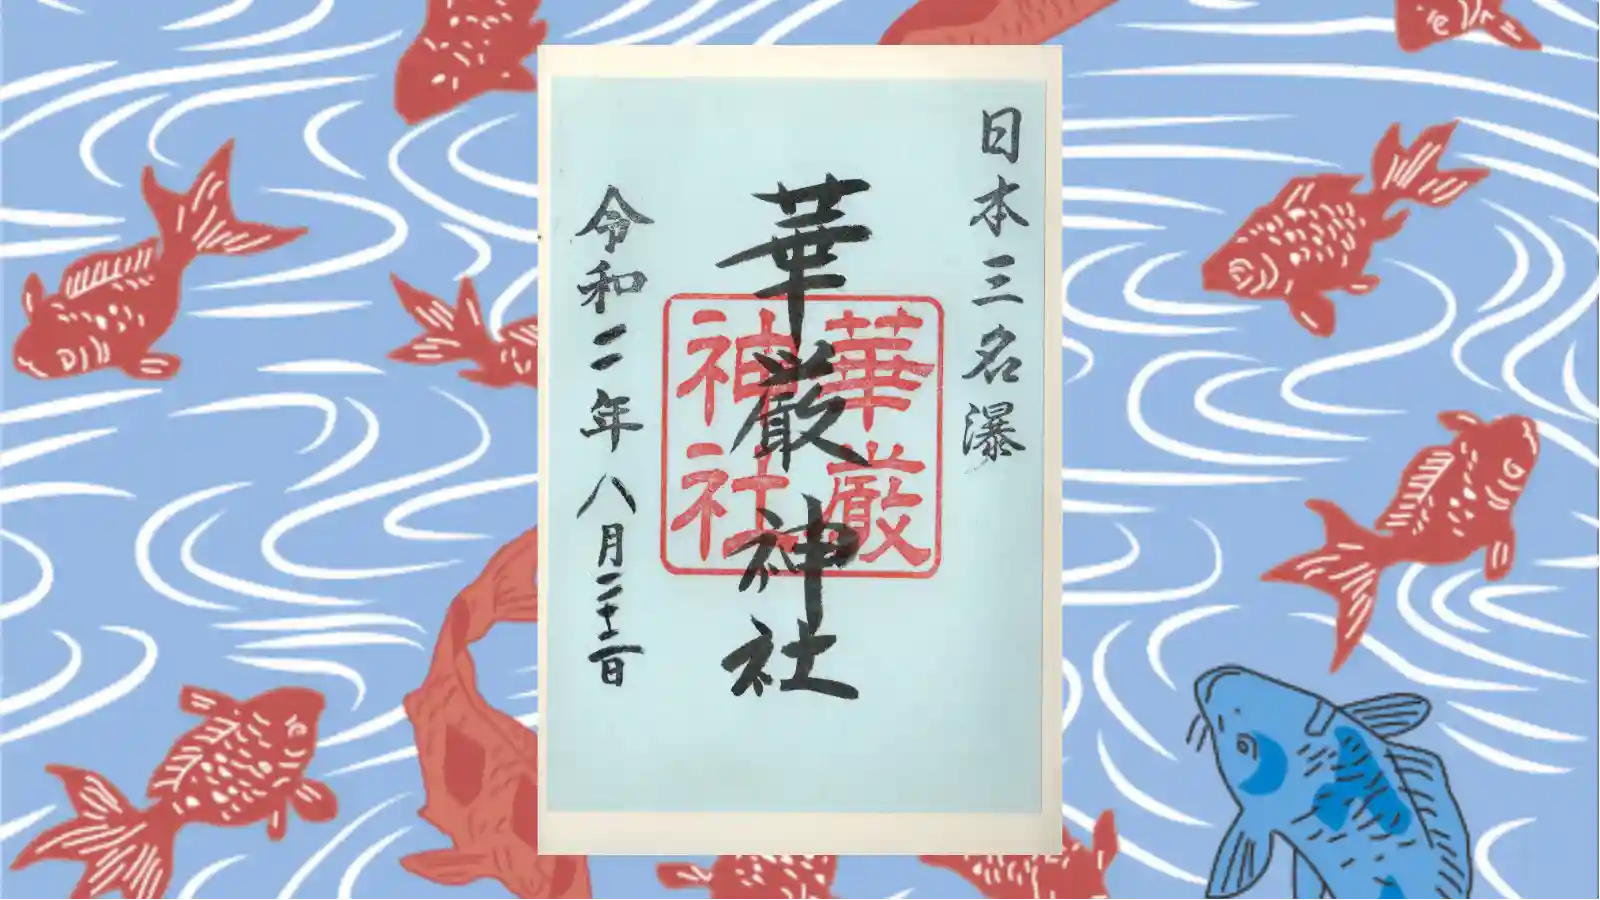 日本三名瀑
華厳神社
華厳
神社
令和二年八月二十三日